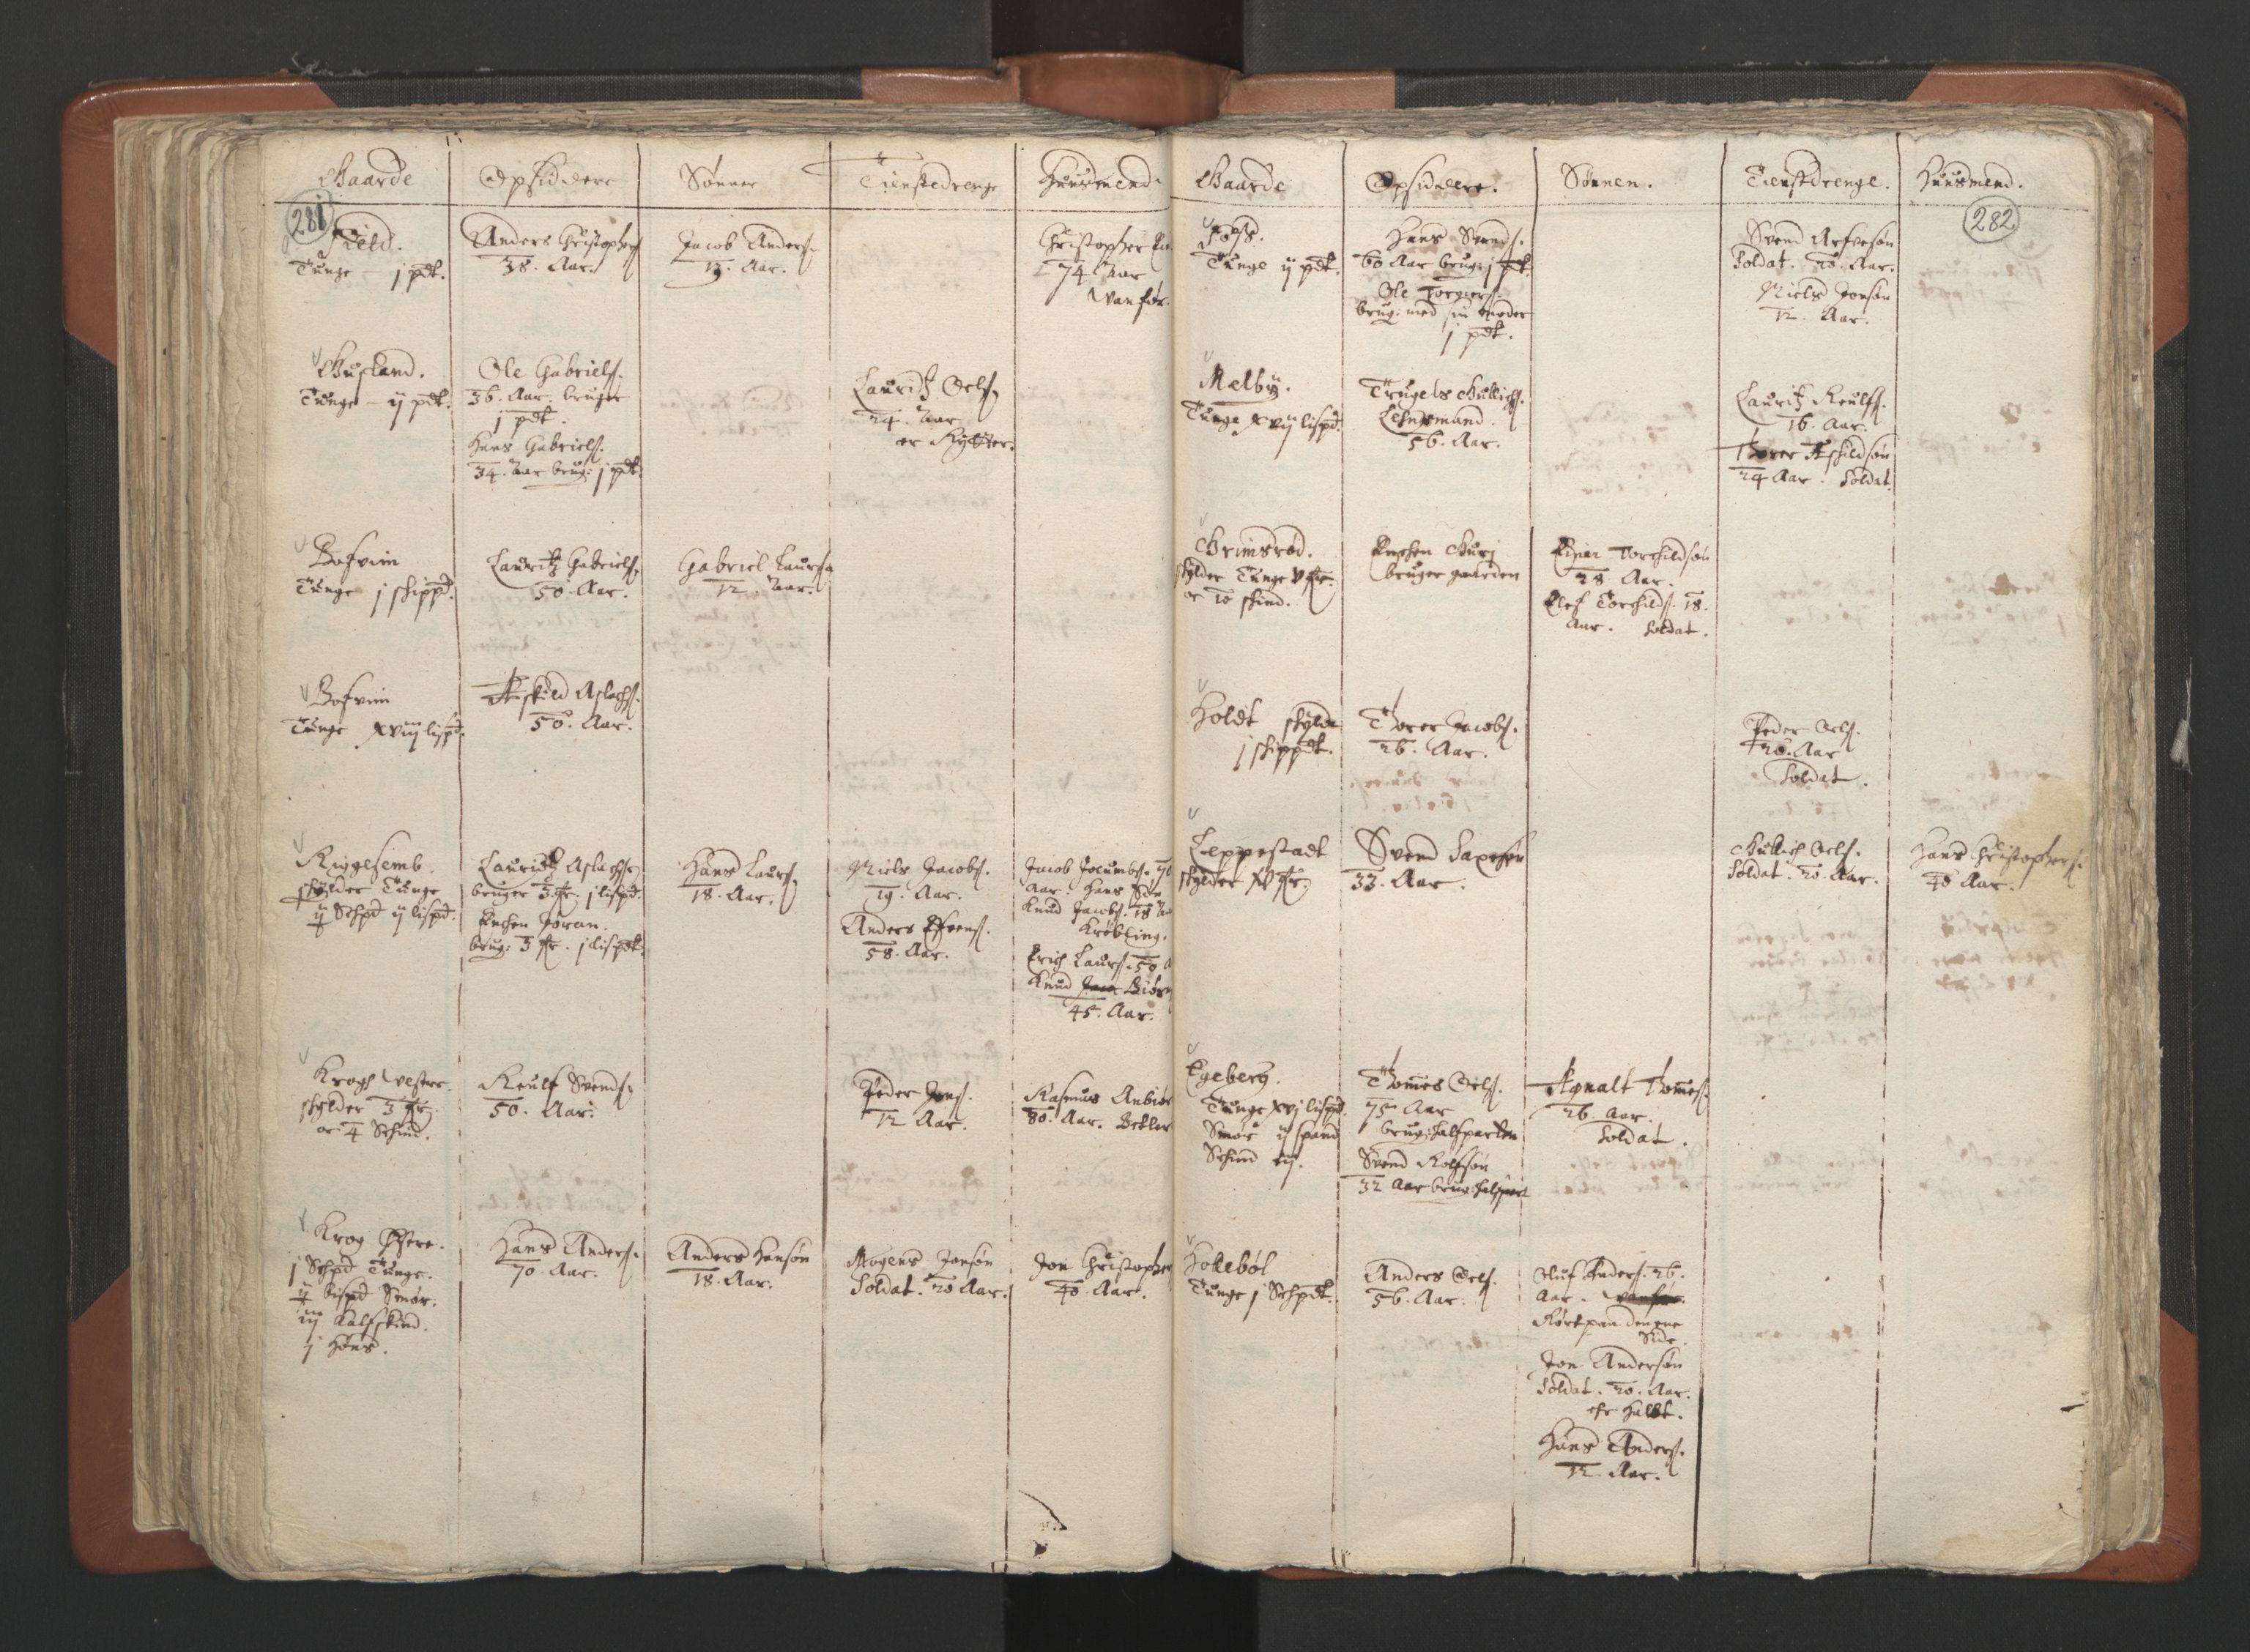 Gaarde Opsiddere Sønner Tienstedrenge Huusmend
281
Field.
Tunge j pdt.
Anders Christophers.
38. Aar.
Jacob Anders.
13. Aar.
Christopher
74 Aar
Wanför.
Gusland.
Tunge - ij pdt.
Ole Gabriels.
36. Aar. bruger
j pdt.
Hans Gabriels.
34. Aar brug: j pdt.
Lauritz Oels.
24. Aar
er Rytter.
Bofvim
Tunge j schippd.
Lauritz Gabriels.
50. Aar.
Gabriel Laurs.
12. Aar.
Bofvim
Tunge xviij lispd.
Askild Aslachs.
50. Aar.
Kiggesemb.
schylder Tunge
ij Schpd ij lispd.
Lauridtz Aslachs.
bruger 3 fr. j lispd.
Enchen Joran.
brug: 3 fr. j lispdt.
Hans Laurs.
18. Aar.
Niels Jacobs.
19. Aar.
Anders Efvens.
58. Aar.
Jacob Jocumbs. 70
Aar. Hans Søn
Knud Jacobs. 18 Aar
Krøbling.
Erich Laurs. 50 A
Knud Biør
45. Aar.
Krogh Vestre.
schylder 3 fr.
oc 4 Schind.
Reulf Svends.
50. Aar.
Peder Jons.
12 Aar.
Rasmus Anbiør
80. Aar. Betler
Krog Østre.
j Schpd Tunge.
ij bispd Smør.
iij Kalfskind.
j Høns.
Hans Anders.
70. Aar.
Anders Hansøn
18. Aar.
Mogens Jonsøn
Soldat. 20 Aar.
Jon Christopher
40. Aar.
Gaarde Opsiddere. Sønnen. Tienstdrenge. Huusmend.
282
Foss.
Tunge ij pdt.
Hans Svends.
60 Aar brug: j pdt.
Ole Torgiers.
brug: med sin Moder
j pdt.
Svend Arfvesøn
Soldat. 20. Aar.
Niels Jonsøn
12. Aar.
Melby.
Tunge xvij lispd.
Trugels Gullichs.
Lehnsmand.
56. Aar.
Lauritz Reulfs.
16. Aar.
Thorer Askildsøn
24 Aar. Soldat.
Grimsrød.
schylder Tunge V fr.
oc 10 skind.
Enchen Gurj
bruger gaarden
Einer Torchildsøn
28. Aar.
Elef Torchilds. 18.
Aar. Soldat.
Holdt schylder
j schippdt.
Thorer Jacobs.
26. Aar.
Peder Oels.
20. Aar
Soldat.
Leppestadt
schylder XV fr.
Svend Saxesøn
33. Aar.
Gullich Oels.
Soldat. 20. Aar.
Hans Christophers.
40 Aar.
Egeberg.
Tunge xvj lispd.
Smør ij spand
Schind iij.
Thomes Oels.
75 Aar
brug: halfparten
Svend Rolfsøn
32 Aar brug: halfpart
Agnalt Thomes.
26. Aar.
Soldat.
Holebøl
Tunge j Schpdt.
Anders Oels.
56. Aar.
Oluf Anders. 26.
Aar. Wanför.
Rørt paa den ene
Side.
Jon Andersøn
Soldat. 20. Aar.
er Halt.
Hans Anders.
12. Aar.